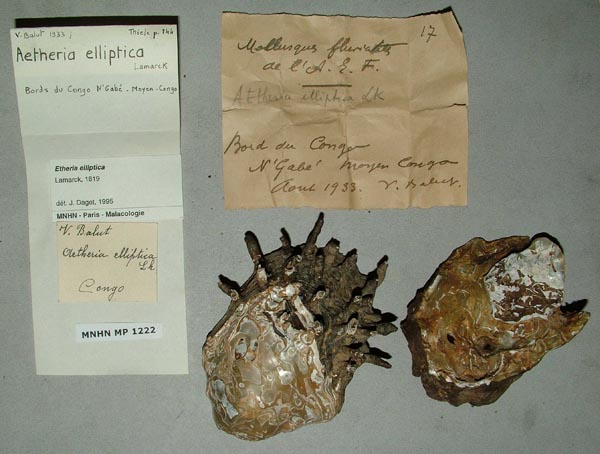 V. Balut 1933 ; Thiele p. 844
Aetheria elliptica
Lamarck
Bords du Congo N'Gabé - Moyen-Congo
Etheria elliptica
Lamarck, 1819
dét. J. Daget, 1995
MNHN - Paris - Malacologie
V. Balut
Aetheria elliptica
Lk
Congo
MNHN MP 1222
17
Mollusques fluviatiles
de l'A. E. F.
Aetheria elliptica Lk
Bord du Congo
N'Gabé Moyen Congo
Aout 1933. V. Balut.